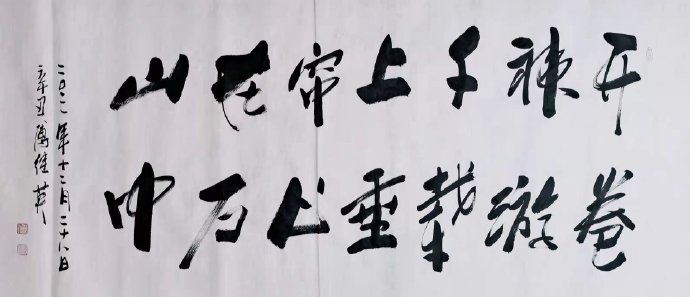 开卷
神游
千载
上垂
帘心
在万
山中
二〇二一年十二月二十八日
辛丑